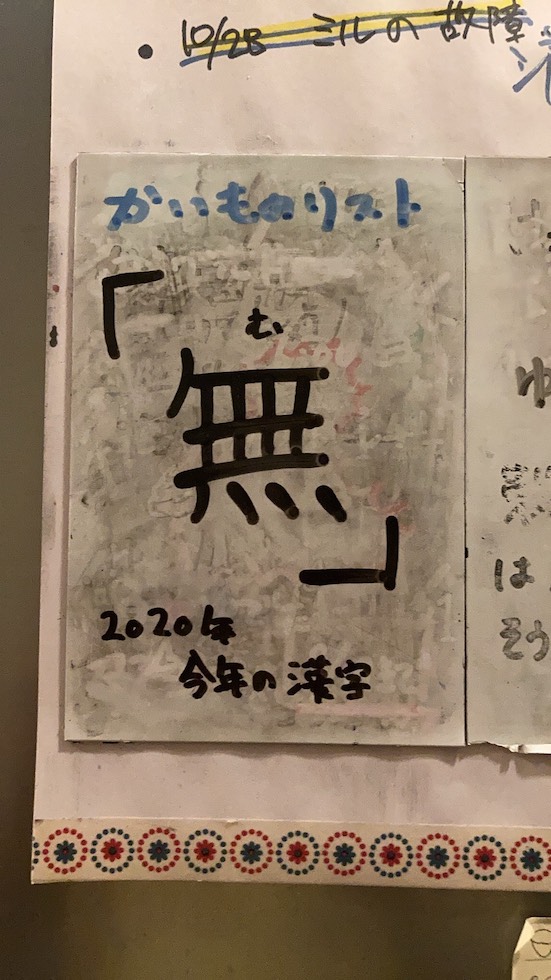 10/28 ミルの故障
かいものリスト
「
む
無
」
2020年
今年の漢字
ゆ
は
そう